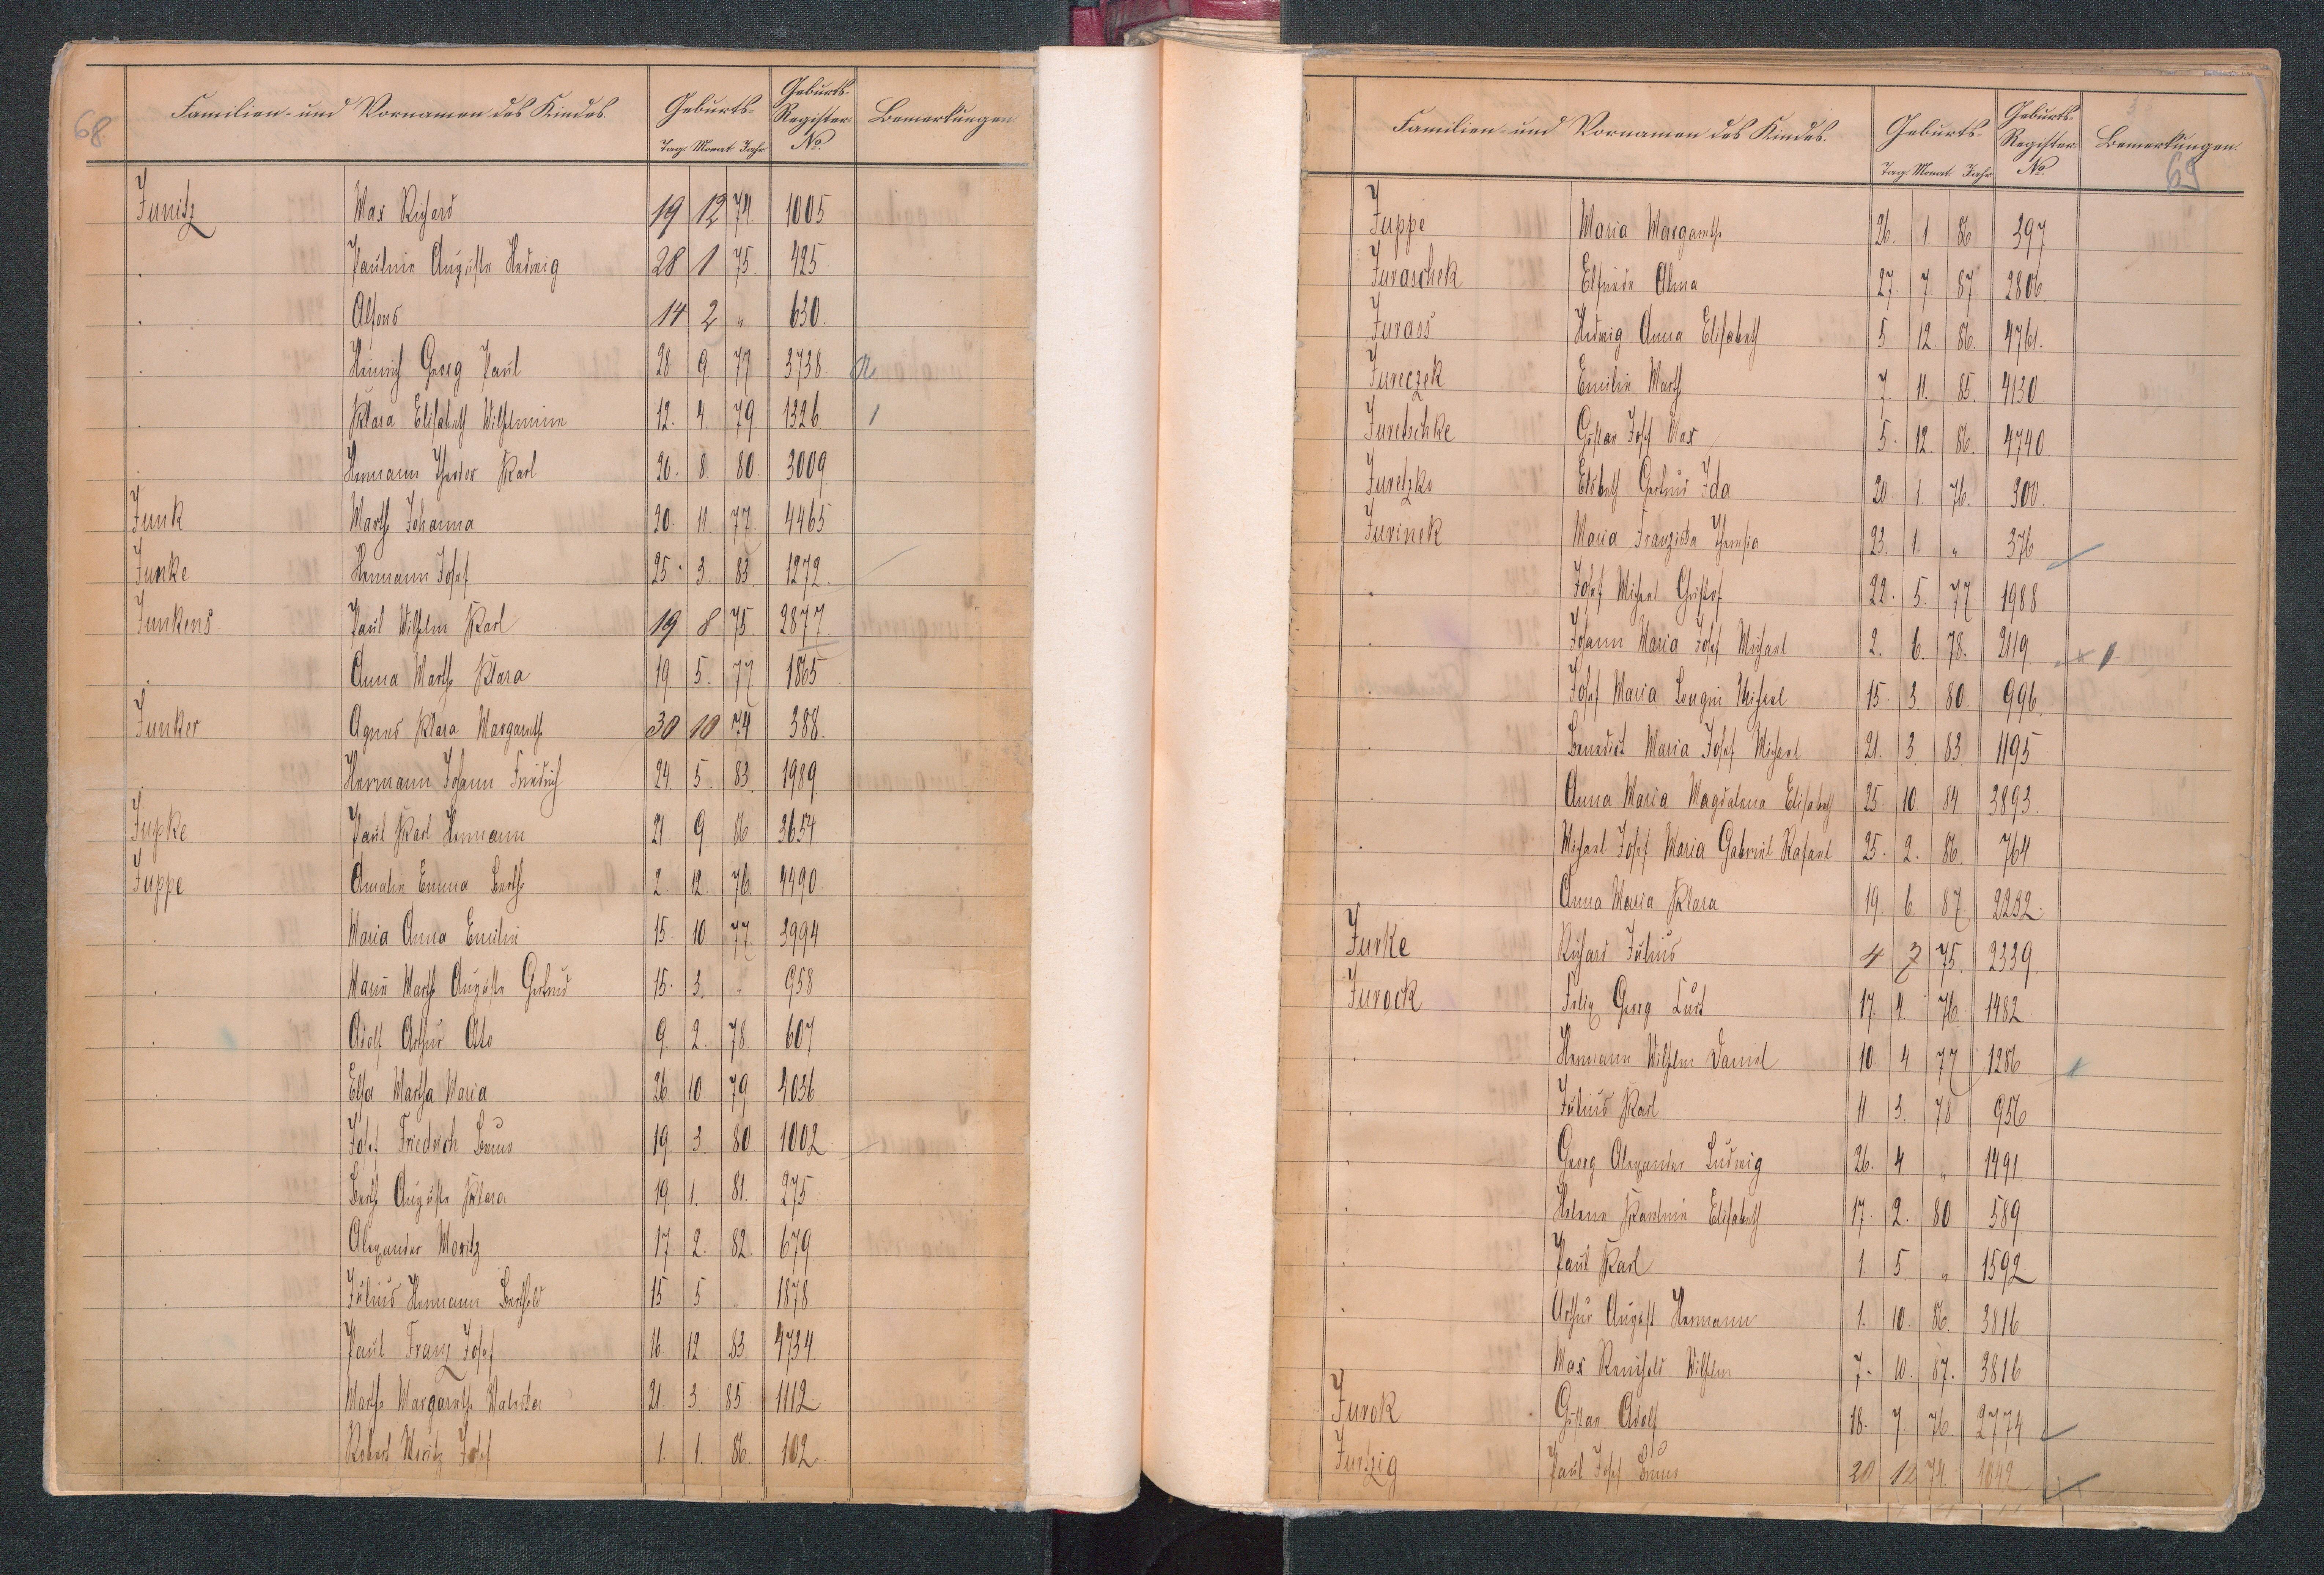 68
Familien- und Vornamen des Kindes.
Geburts-
Geburts-Register No.
Bemerkungen.
Tag Monat Jahr
Junitz Max Richard 19 12 74 1005
. Pauline Auguste Hedwig 28 1 75. 425
. Alfons 14 2 " 630.
. Heinrich Georg Paul 28. 9. 77 3738
. Klara Elisabeth Wilhelmine 12. 4. 79. 1326
. Hermann Theodor Karl 20. 8. 80. 3009
Junk Marthe Johanna 20 11. 77. 4465
Junke Hermann Josef 25. 3. 83. 1272.
Junkens Paul Wilhelm Karl 19 8 75. 2877
. Anna Marthe Klara 19. 5. 77 1865
Junker Agnes Klara Margarethe 30 10 74 388.
. Hermann Johann Friedrich 24. 5. 83. 1989
Jupke Paul Karl Hermann 21 9 86 3654.
Juppe Amalie Emma Berthe 2 12. 76 4490
. Maria Anna Emilie 15. 10 77. 3994
. Marie Marthe Auguste Gertrud 15. 3. " 958
. Adolf Arthur Otto 9. 2. 78. 607
. Elsa Martha Maria 26 10 79 4036
. Josef Friedrich Bruno 19. 3. 80 1002
. Berthe Auguste Klara 19. 1. 81. 275
. Alexander Moritz 17. 2. 82. 679
. Julius Hermann Berthold 15 5 1878
. Paul Franz Josef 16. 12. 83. 4734.
. Marthe Margarethe Valeska 21. 3. 85 1112
. Robert Moritz Josef 1. 1. 86. 102.
69
Familien- und Vornamen des Kindes.
Geburts-
Geburts-Register No.
Bemerkungen.
Tag Monat Jahr
Juppe Maria Margarethe 26. 1. 86 397
Juraschek Elfriede Alma 27. 7. 87. 2806.
Jurass Hedwig Anna Elisabeth 5. 12. 86. 4761.
Jureczek Emilie Marthe 7. 11. 85. 4130.
Juretschke Gustav Josef Max 5. 12. 86. 4740.
Juretzko Elsbeth Gertrud Ida 20. 1. 76. 300.
Jurinek Maria Franziska Theresia 23. 1. " 376
. Josef Michael Christof 22. 5. 77 1988
. Johann Maria Josef Michael 2. 6. 78. 2119
. Josef Maria Michael 15. 3. 80. 996.
. Benedict Maria Josef Michael 21. 3. 83. 1195
. Anna Maria Magdalena Elisabeth 25. 10. 84 3893.
. Michael Josef Maria Gabriel Rafael 25. 2. 86. 764
Anna Maria Klara 19. 6. 87 2232.
Jurke Richard Julius 4 7 75. 2339.
Jurock Felix Georg Curt 17. 4. 76. 1482
. Hermann Wilhelm Daniel 10. 4 77 1286
. Julius Karl 11 3. 78 956
. Georg Alexander Ludwig 26. 4 " 1491
. Helene Karoline Elisabeth 17. 2. 80 589
. Paul Karl 1. 5. " 1592
. Arthur August Hermann 1. 10. 86. 3816
Max Reinhold Wilhelm 7. 10. 87. 3816
Jurok Gustav Adolf 18. 7. 76. 2774
Jurtzig Paul Josef Bruno 20 12 74. 1042